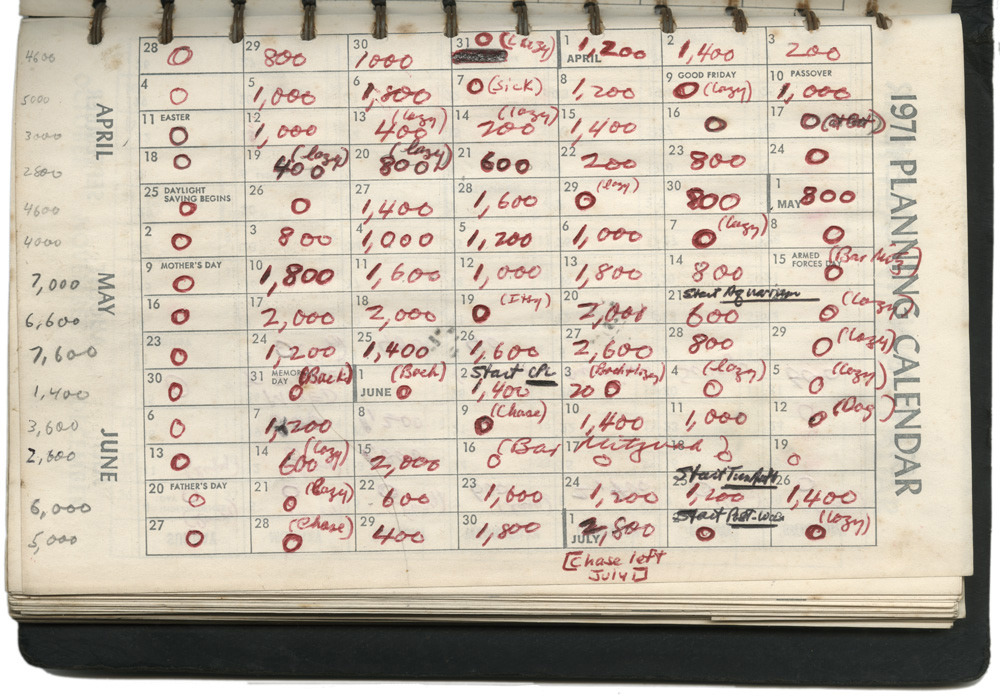 1971 PLANNING CALENDAR
APRIL
MAY
JUNE
4600 28 0 29 800 30 1000 31 0 (Lazy) 1 APRIL 1,200 2 1,400 3 200
5000 4 0 5 1,000 6 1,800 7 0 (Sick) 8 1,200 9 GOOD FRIDAY 0 (lazy) 10 PASSOVER 1,000
3000 11 EASTER 0 12 1,000 13 (lazy) 400 14 (lazy) 200 15 1,400 16 0 17 0
2800 18 0 19 (lazy) 400 20 (lazy) 800 21 600 22 200 23 800 24 0
4600 25 DAYLIGHT SAVING BEGINS 0 26 0 27 1,400 28 1,600 29 (lazy) 0 30 800 1 MAY 800
4000 2 0 3 800 4 1,000 5 1,200 6 1,000 7 (lazy) 0 8 0
7,000 9 MOTHER'S DAY 0 10 1,800 11 1,600 12 1,000 13 1,800 14 800 15 ARMED FORCES DAY 0 (Bar
6,600 16 0 17 2,000 18 2,000 19 0 (Itty) 20 2,000 21 Start Aquarium 600 0 (Lazy)
7,600 23 0 24 1,200 25 1,400 26 1,600 27 2,600 28 800 29 0 (lazy)
1,400 30 0 31 MEMORIAL DAY (Back) 0 1 JUNE (Back) 0 2 Start CPL 1,400 3 (Back + lazy) 20 0 4 (lazy) 0 5 (lazy) 0
3,600 6 0 7 1,200 8 9 (Chase) 0 10 1,400 11 1,000 12 (Dog) 0
2,600 13 0 14 (lazy) 600 15 2,000 16 (Bar 0 17 Mitzvah) 0 18 19 0
6,000 20 FATHER'S DAY 0 21 (lazy) 0 22 600 23 1,600 24 1,200 25 Start 1,200 26 1,400
5,000 27 0 28 (Chase) 0 29 400 30 1,800 1 JULY 2,800 Start 0 (lazy) 0
[Chase left
July 1]